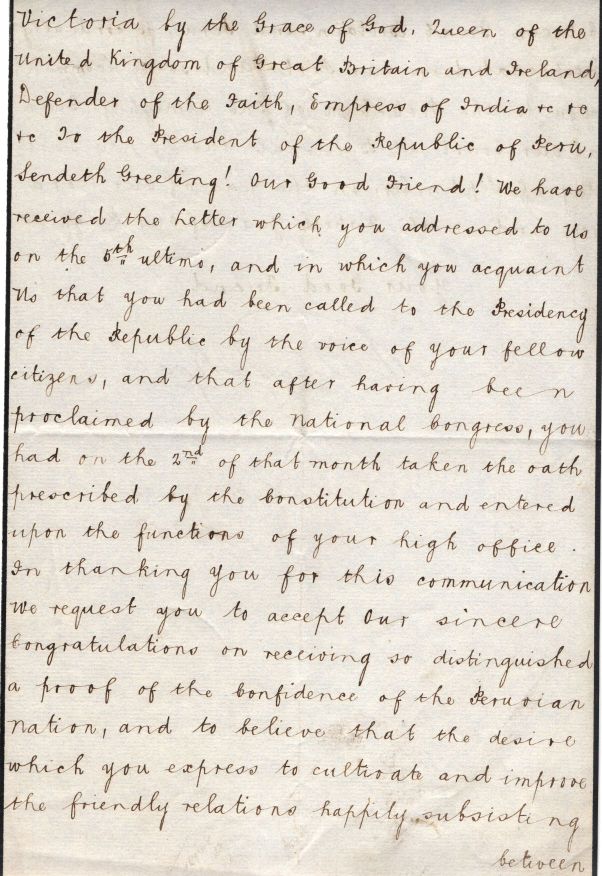 Victoria by the Grace of God, Queen of the
United Kingdom of Great Britain and Ireland,
Defender of the Faith, Empress of India &c &c
&c To the President of the Republic of Peru,
Sendeth Greeting! Our Good Friend! We have
received the Letter which you addressed to Us
on the 5th ultimo, and in which you acquaint
Us that you had been called to the Presidency
of the Republic by the voice of your fellow
citizens, and that after having been
proclaimed by the National Congress, you
had on the 2nd of that month taken the oath
prescribed by the Constitution and entered
upon the functions of your high office.
In thanking you for this communication
We request you to accept Our sincere
Congratulations on receiving so distinguished
a proof of the Confidence of the Peruvian
Nation, and to believe that the desire
which you express to cultivate and improve
the friendly relations happily subsisting
between